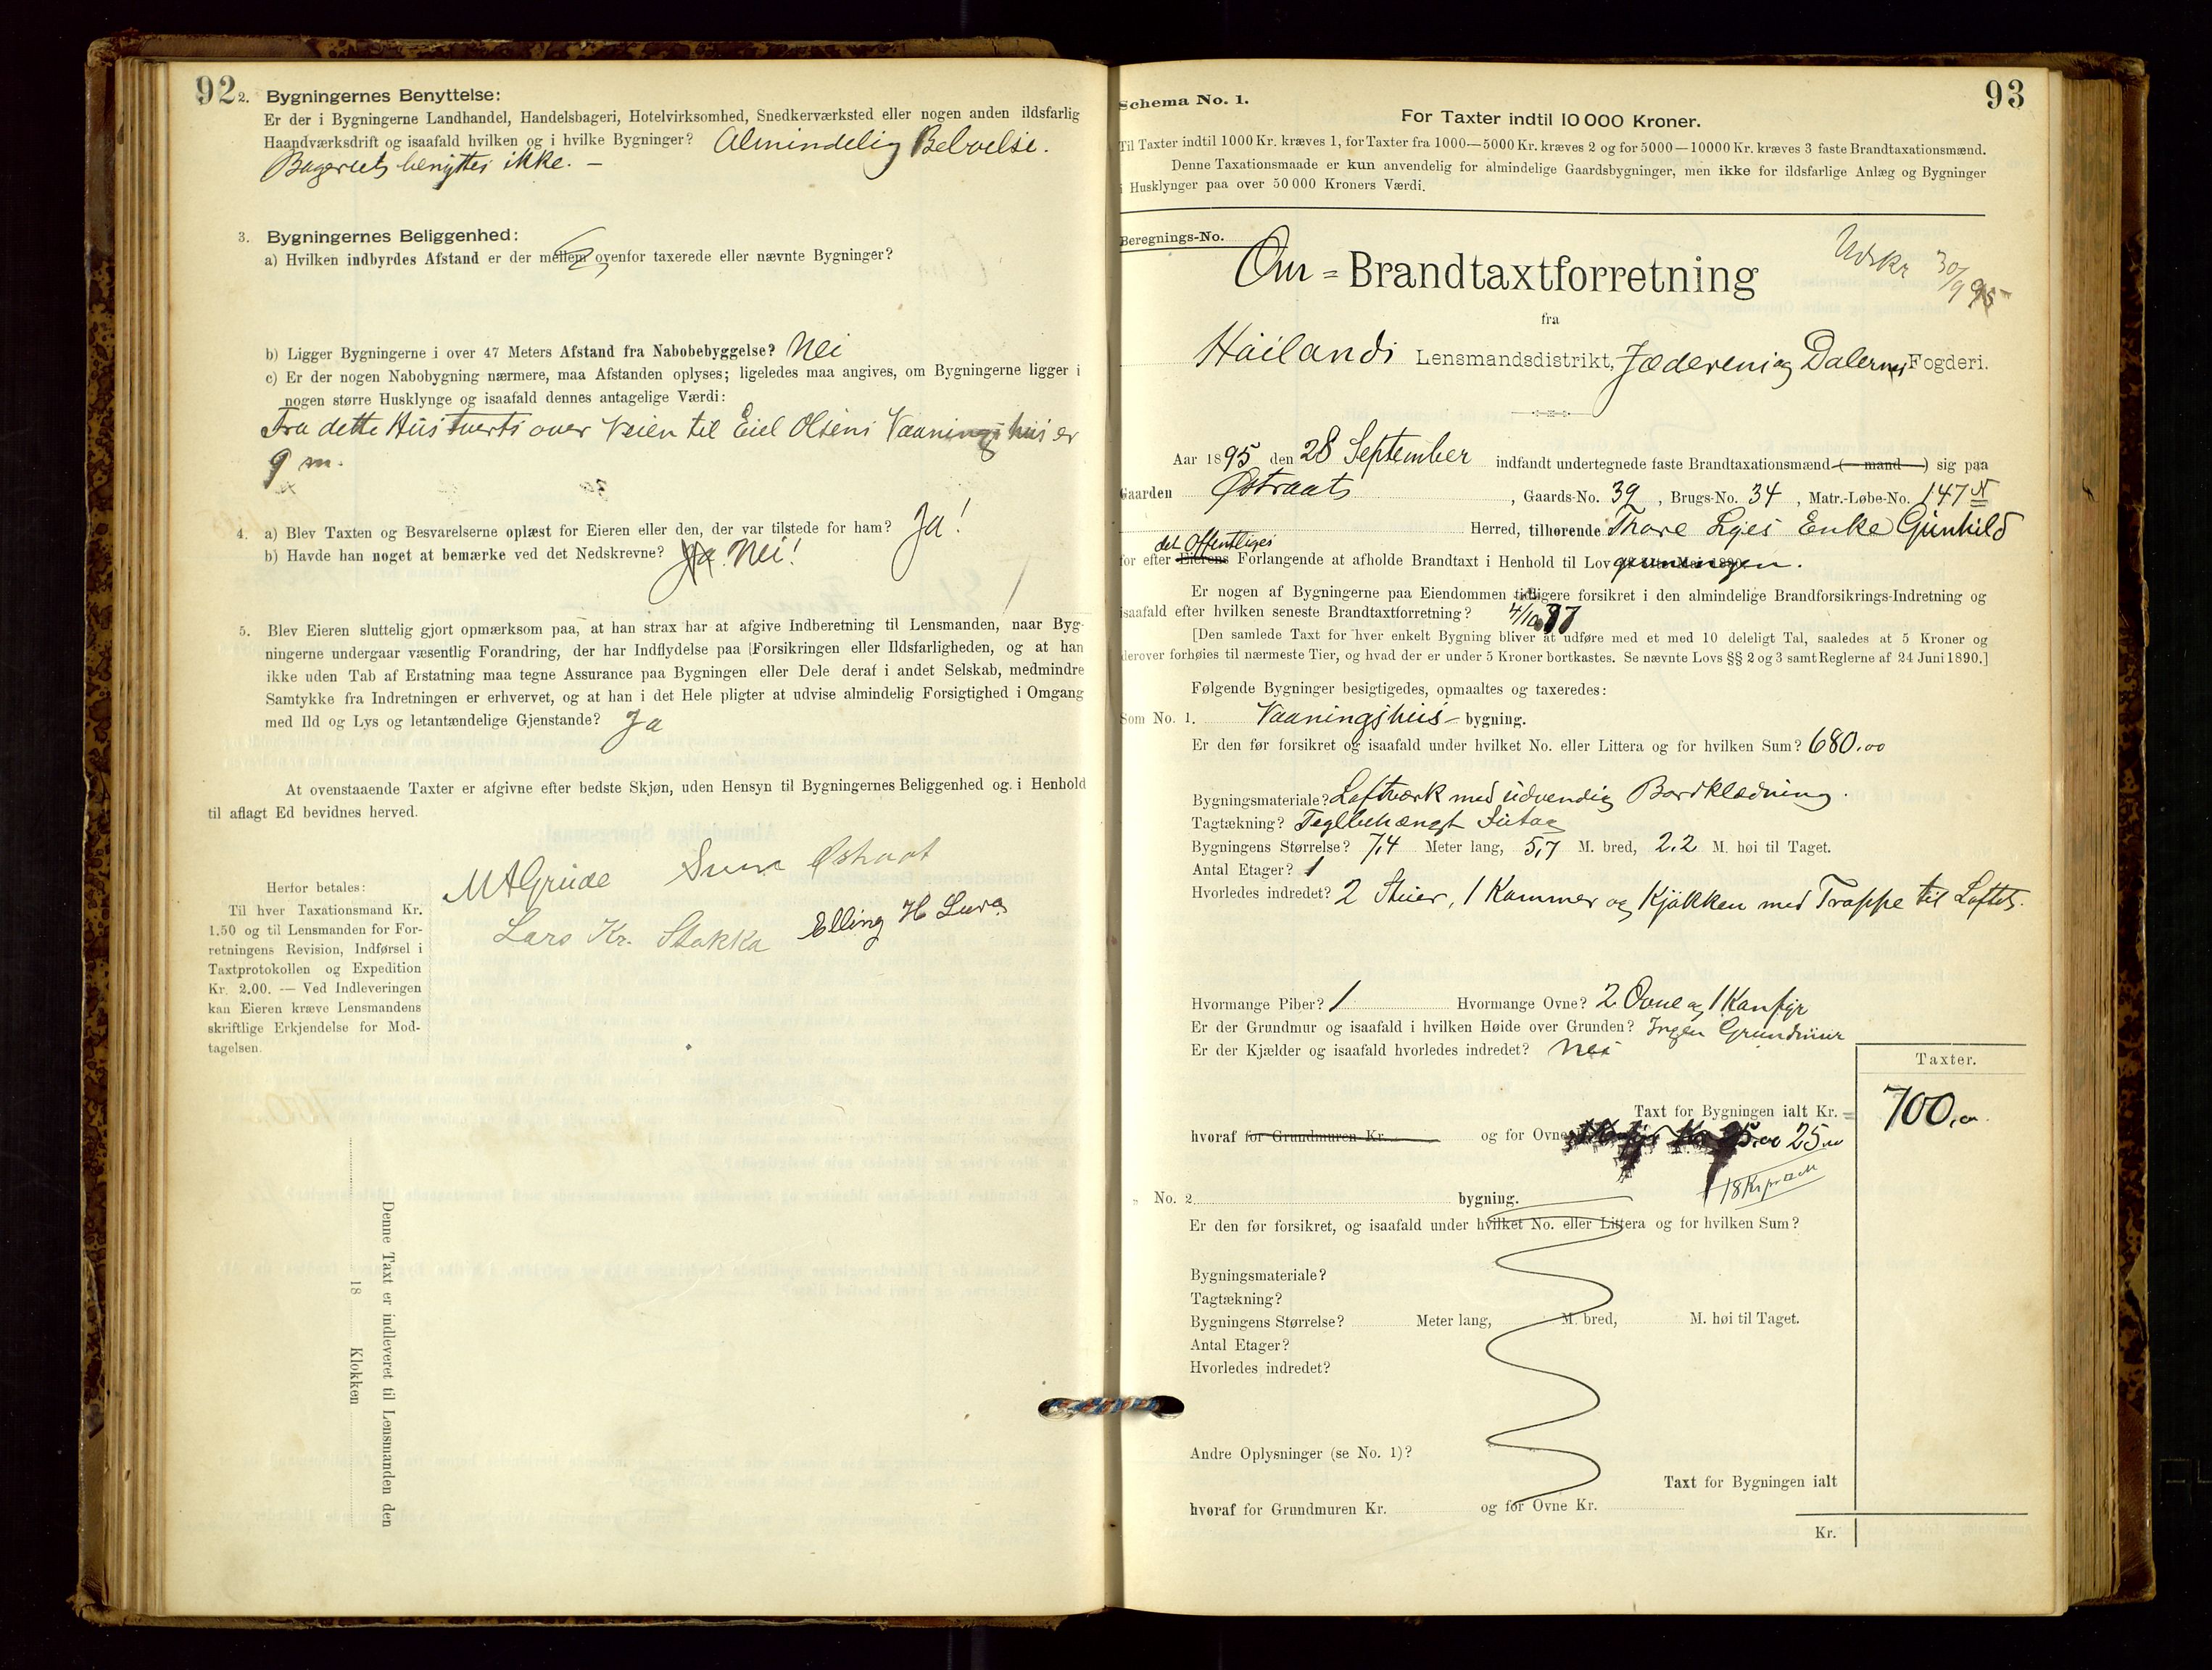 92
2. Bygningernes Benyttelse:
Er der i Bygningerne Landhandel, Handelsbageri, Hotelvirksomhed, Snedkerværksted eller nogen anden ildsfarlig
Haandværksdrift og isaafald hvilken og i hvilke Bygninger? Almindelig Beboelse.
Bageriet benyttes ikke. —
3. Bygningernes Beliggenhed:
a) Hvilken indbyrdes Afstand er der mellem ovenfor taxerede eller nævnte Bygninger?
b) Ligger Bygningerne i over 47 Meters Afstand fra Nabobebyggelse? Nei
c) Er der nogen Nabobygning nærmere, maa Afstanden oplyses; ligeledes maa angives, om Bygningerne ligger i
nogen større Husklynge og isaafald dennes antagelige Værdi:
Fra dette Hus tverts over Veien til Eiel Olsens Vaaningshus er
9 m.
4. a) Blev Taxten og Besvarelserne oplæst for Eieren eller den, der var tilstede for ham? Ja!
b) Havde han noget at bemærke ved det Nedskrevne? Ja. Nei!
5. Blev Eieren sluttelig gjort opmærksom paa, at han strax har at afgive Indberetning til Lensmanden, naar Byg-
ningerne undergaar væsentlig Forandring, der har Indflydelse paa Forsikringen eller Ildsfarligheden, og at han
ikke uden Tab af Erstatning maa tegne Assurance paa Bygningen eller Dele deraf i andet Selskab, medmindre
Samtykke fra Indretningen er erhvervet, og at han i det Hele pligter at udvise almindelig Forsigtighed i Omgang
med Ild og Lys og letantændelige Gjenstande? Ja
At ovenstaaende Taxter er afgivne efter bedste Skjøn, uden Hensyn til Bygningernes Beliggenhed og i Henhold
til aflagt Ed bevidnes herved.
M A Grude Østraat
Lars Kr. Stokka Elling H Lura
Herfor betales:
Til hver Taxationsmand Kr.
1.50 og til Lensmanden for For-
retningens Revision, Indførsel i
Taxtprotokollen og Expedition
Kr. 2.00. — Ved Indleveringen
kan Eieren kræve Lensmandens
skriftlige Erkjendelse for Mod-
tagelsen.
Denne Taxt er indleveret til Lensmanden den
18 Klokken
93
Schema No. 1.
For Taxter indtil 10 000 Kroner.
Til Taxter indtil 1000 Kr. kræves 1, for Taxter fra 1000—5000 Kr. kræves 2 og for 5000—10000 Kr. kræves 3 faste Brandtaxationsmænd.
Denne Taxationsmaade er kun anvendelig for almindelige Gaardsbygninger, men ikke for ildsfarlige Anlæg og Bygninger
i Husklynger paa over 50 000 Kroners Værdi.
Beregnings-No.
Udskr 30/9 95
Om = Brandtaxtforretning
fra
Høilands Lensmandsdistrikt, Jæderen og Dalernes Fogderi.
Aar 1895 den 28 September indfandt undertegnede faste Brandtaxationsmænd (— mand —) sig paa
Gaarden Østraats, Gaards-No. 39, Brugs-No. 34, Matr.-Løbe-No. 147 N
Herred, tilhørende Thore Lyes Enke Gunhild
det Offentliges
for efter Eierens Forlangende at afholde Brandtaxt i Henhold til Lovgivningen.
Er nogen af Bygningerne paa Eiendommen tidligere forsikret i den almindelige Brandforsikrings-Indretning og
isaafald efter hvilken seneste Brandtaxtforretning? 4/10 87
[Den samlede Taxt for hver enkelt Bygning bliver at udføre med et med 10 deleligt Tal, saaledes at 5 Kroner og
derover forhøies til nærmeste Tier, og hvad der er under 5 Kroner bortkastes. Se nævnte Lovs §§ 2 og 3 samt Reglerne af 24 Juni 1890.]
Følgende Bygninger besigtigedes, opmaaltes og taxeredes:
Som No. 1. Vaaningshus- bygning.
Er den før forsikret og isaafald under hvilket No. eller Littera og for hvilken Sum? 680.00
Bygningsmateriale? Loftværk med udvendig Bordklædning.
Tagtækning? Teglbehængt Sutag
Bygningens Størrelse? 7,4 Meter lang, 5,7 M. bred, 2.2 M. høi til Taget.
Antal Etager? 1
Hvorledes indredet? 2 Stuer, 1 Kammer og Kjøkken med Trappe til Loftet.
Hvormange Piber? 1 Hvormange Ovne? 2 Ovne og 1 Komfyr
Er der Grundmur og isaafald i hvilken Høide over Grunden? Ingen Grundmur
Er der Kjælder og isaafald hvorledes indredet? Nei
Taxter.
Taxt for Bygningen ialt Kr. = 700.00
hvoraf for Grundmuren Kr. og for Ovne 25.00
No. 2 bygning.
Er den før forsikret, og isaafald under hvilket No. eller Littera og for hvilken Sum?
Bygningsmateriale?
Tagtækning?
Bygningens Størrelse? Meter lang, M. bred, M. høi til Taget.
Antal Etager?
Hvorledes indredet?
Andre Oplysninger (se No. 1)?
Taxt for Bygningen ialt
hvoraf for Grundmuren Kr. og for Ovne Kr.
Kr.